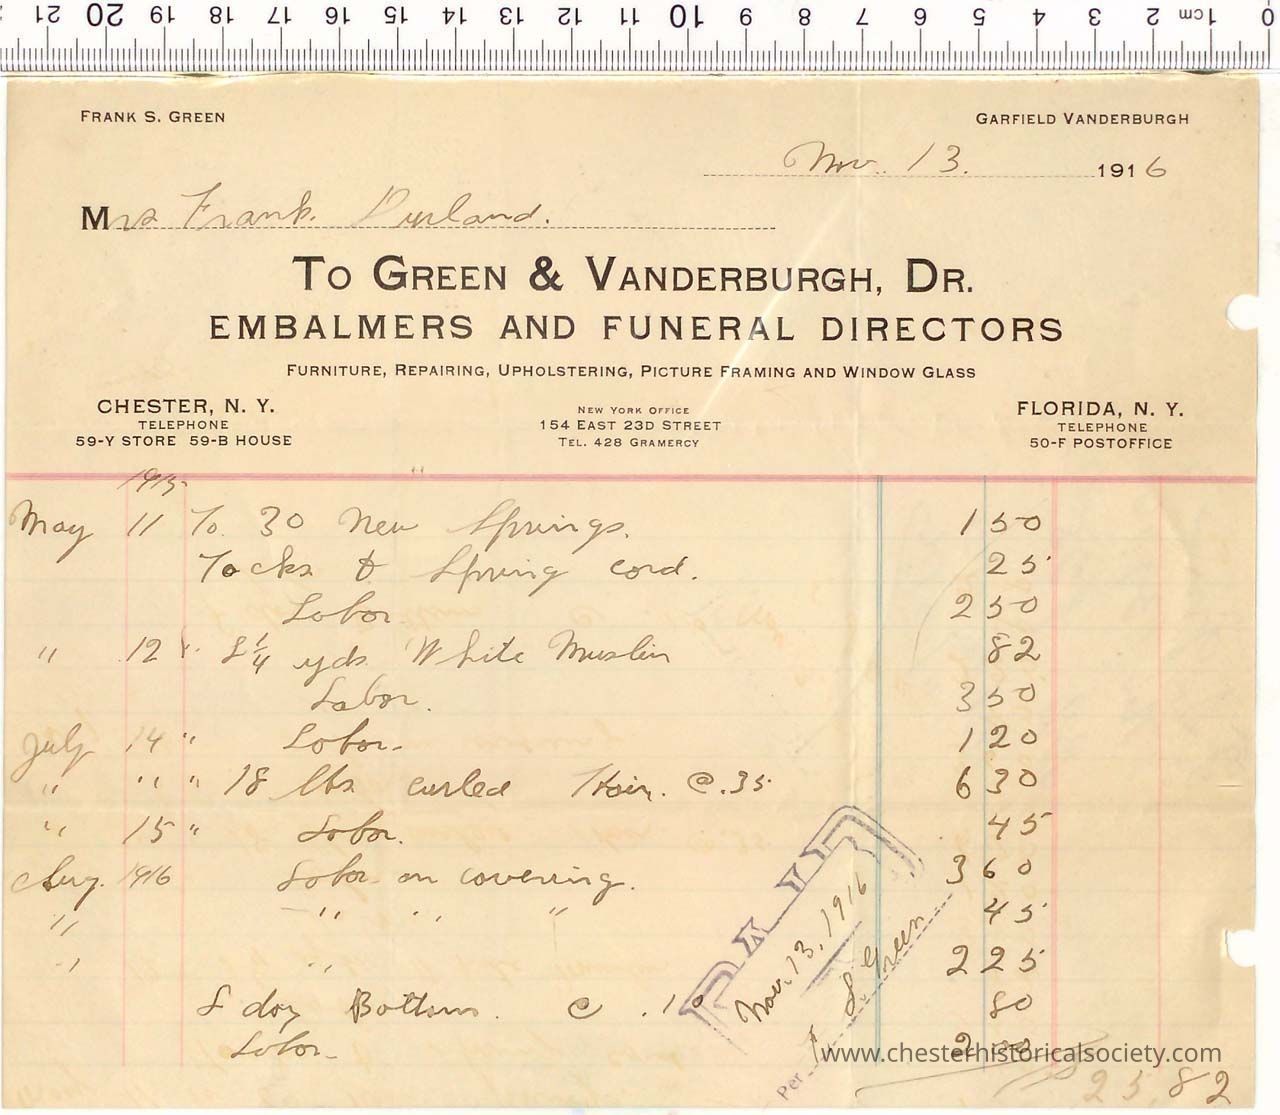 0 1cm 2 3 4 5 6 7 8 9 10 11 12 13 14 15 16 17 18 19 20 21
FRANK S. GREEN GARFIELD VANDERBURGH
Nov. 13. 1916
Mrs Frank Durland.
TO GREEN & VANDERBURGH, DR.
EMBALMERS AND FUNERAL DIRECTORS
FURNITURE, REPAIRING, UPHOLSTERING, PICTURE FRAMING AND WINDOW GLASS
CHESTER, N. Y. NEW YORK OFFICE FLORIDA, N. Y.
TELEPHONE 154 EAST 23D STREET TELEPHONE
59-Y STORE 59-B HOUSE TEL. 428 GRAMERCY 50-F POSTOFFICE
1915
May 11 To 30 New Springs. 1 50
Tacks & Spring cord. 25
Labor 2 50
" 12 " 8 1/4 yds White Muslin 82
Labor. 3 50
July 14 " Labor. 1 20
" " " 18 lbs curled Hair. @ .35 6 30
" 15 " Labor. 45
Aug. 1916 Labor on covering. 3 60
" " " " 45
" " 2 25
8 doz Buttons. @ .10 80
Labor 2 00
25.82
PAID
Nov. 13, 1916
Per F S Green
www.chesterhistoricalsociety.com